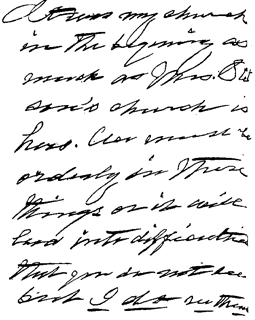 It was my church
in the begining as
much as Mrs. Stet
son's church is
hers. One must be
orderly in these
things or it will
lead into difficulties
that you do not see
but I do see them